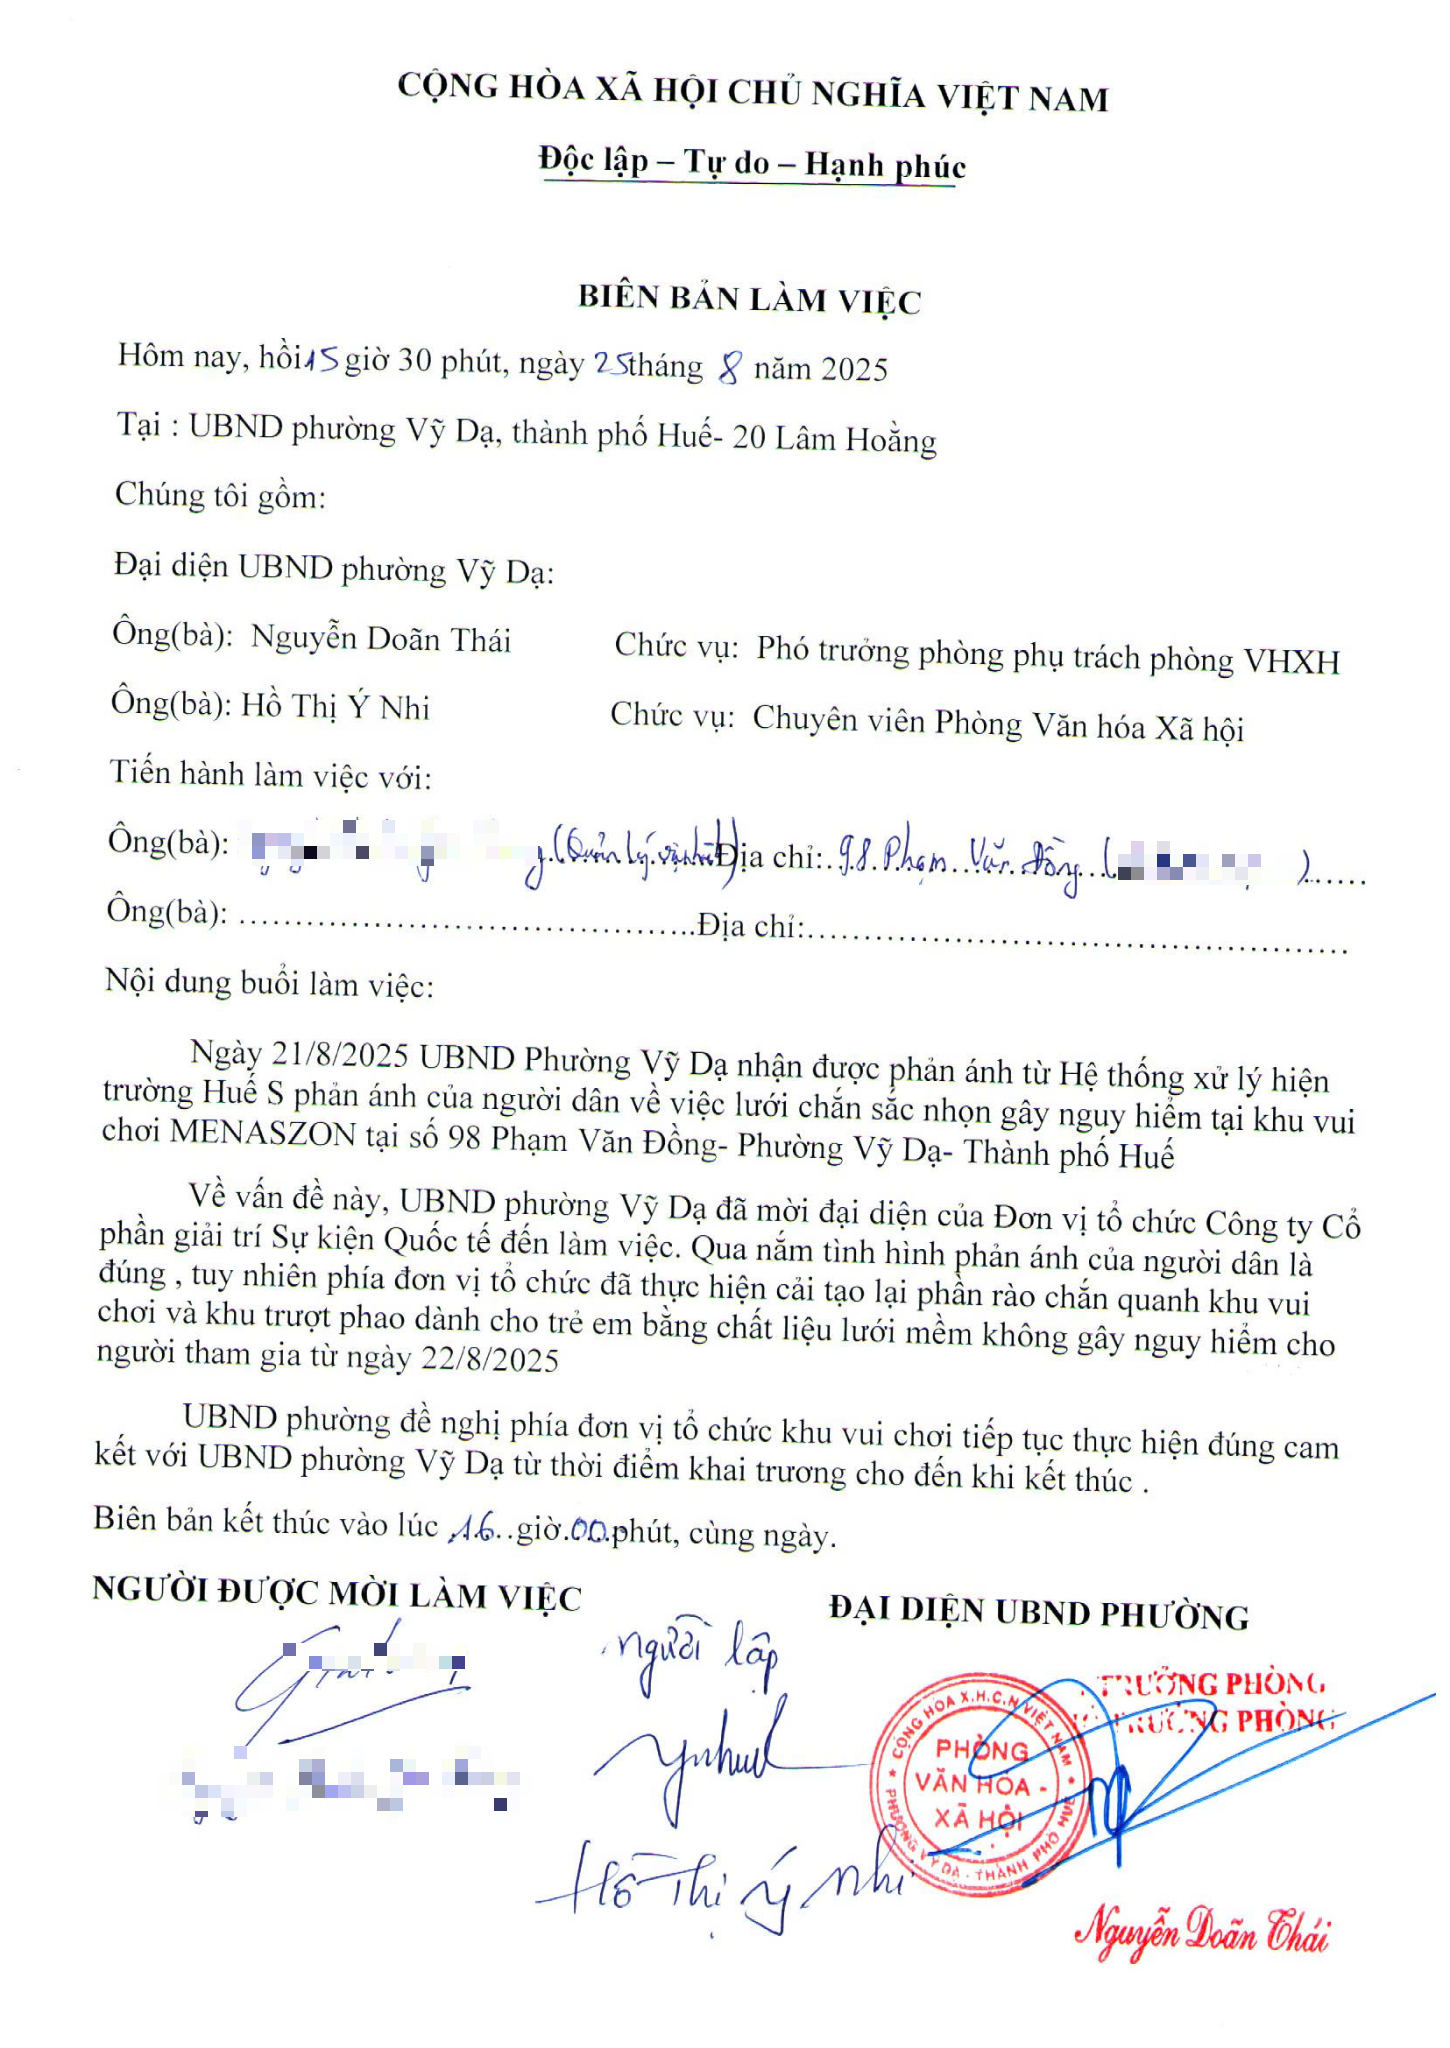 CỘNG HÒA XÃ HỘI CHỦ NGHĨA VIỆT NAM
Độc lập – Tự do – Hạnh phúc
BIÊN BẢN LÀM VIỆC
Hôm nay, hồi 15 giờ 30 phút, ngày 25 tháng 8 năm 2025
Tại : UBND phường Vỹ Dạ, thành phố Huế- 20 Lâm Hoằng
Chúng tôi gồm:
Đại diện UBND phường Vỹ Dạ:
Ông(bà): Nguyễn Doãn Thái Chức vụ: Phó trưởng phòng phụ trách phòng VHXH
Ông(bà): Hồ Thị Ý Nhi Chức vụ: Chuyên viên Phòng Văn hóa Xã hội
Tiến hành làm việc với:
Ông(bà): (Quản lý vận hành) Địa chỉ: 98 Phạm Văn Đồng ( )
Ông(bà): ………………………………….Địa chỉ:…………………………………………
Nội dung buổi làm việc:
Ngày 21/8/2025 UBND Phường Vỹ Dạ nhận được phản ánh từ Hệ thống xử lý hiện
trường Huế S phản ánh của người dân về việc lưới chắn sắc nhọn gây nguy hiểm tại khu vui
chơi MENASZON tại số 98 Phạm Văn Đồng- Phường Vỹ Dạ- Thành phố Huế
Về vấn đề này, UBND phường Vỹ Dạ đã mời đại diện của Đơn vị tổ chức Công ty Cổ
phần giải trí Sự kiện Quốc tế đến làm việc. Qua nắm tình hình phản ánh của người dân là
đúng , tuy nhiên phía đơn vị tổ chức đã thực hiện cải tạo lại phần rào chắn quanh khu vui
chơi và khu trượt phao dành cho trẻ em bằng chất liệu lưới mềm không gây nguy hiểm cho
người tham gia từ ngày 22/8/2025
UBND phường đề nghị phía đơn vị tổ chức khu vui chơi tiếp tục thực hiện đúng cam
kết với UBND phường Vỹ Dạ từ thời điểm khai trương cho đến khi kết thúc .
Biên bản kết thúc vào lúc 16 giờ 00 phút, cùng ngày.
NGƯỜI ĐƯỢC MỜI LÀM VIỆC ĐẠI DIỆN UBND PHƯỜNG
Người lập
TRƯỞNG PHÒNG
TRƯỞNG PHÒNG
CỘNG HÒA X.H.C.N VIỆT NAM
PHÒNG
VĂN HÓA -
XÃ HỘI
PHƯỜNG VỸ DẠ - THÀNH PHỐ HUẾ
Hồ Thị Ý Nhi
Nguyễn Doãn Thái